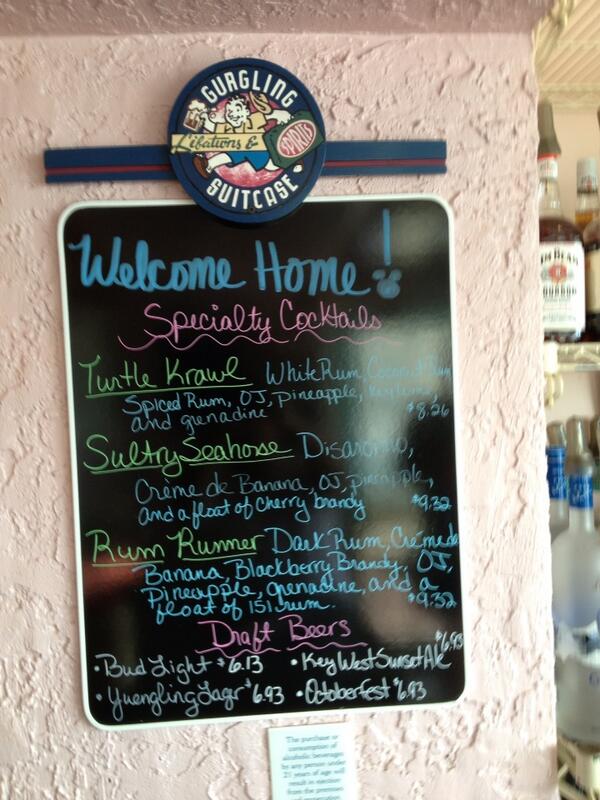 GURGLING
Libations &
SPIRITS
SUITCASE
Welcome Home!
Specialty Cocktails
Turtle Krawl White Rum, Coconut Rum,
Spiced Rum, OJ, pineapple, Key lime,
and grenadine $8.26
Sultry Seahorse Disaronno,
Crème de Banana, OJ, pineapple,
and a float of Cherry brandy $9.32
Rum Runner Dark Rum, Créme de
Banana, Blackberry Brandy, OJ,
pineapple, grenadine, and a
float of 151 rum. $9.32
Draft Beers
• Bud Light $6.13 • Key West Sunset Ale $6.93
• Yuengling Lager $6.93 • Octoberfest $6.93
The purchase or
consumption of
alcoholic beverages
by any person under
21 years of age will
result in ejection
from the premises
BEAM
BOURBON